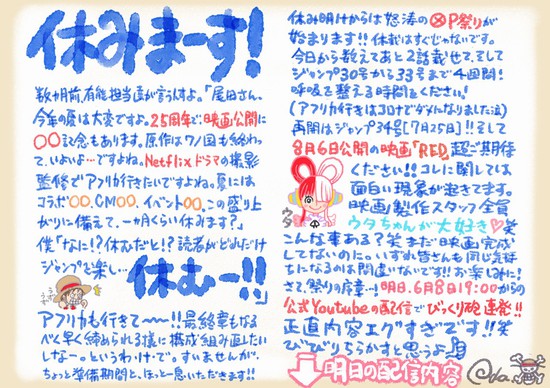 休みまーす!
数か月前、有能担当編が言うんすよ。「尾田さん、
今年の夏は大変ですよ。25周年で、映画公開に
〇〇記念もあります。原作はワノ国も終わっ
て、いよいよ…ですよね。Netflixドラマの撮影
監修でアフリカ行きたいですよね。夏には
コラボ〇〇、CM〇〇、イベント〇〇、この盛り上
がりに備えて、一か月くらい休みます?」
僕「なに!?休むだと!?読者がどれだけ
ジャンプを楽し…休むーー!!」
アフリカも行きて〜〜!!最終章もなる
べく早く締められる様に構成組み直したい
しなーというわけで。すいませんが、
ちょっと準備期間と、ほっと一息いただきます!!
休み明けからは怒涛のⓍP祭りが
始まります!!休載はすぐじゃないです。
今日から数えてあと2話載せて、そして
ジャンプ30号から33号まで4週間!
呼吸を整える時間をください!
(アフリカ行きはコロナでダメになりました泣)
再開はジャンプ34号【7月25日】!!そして
8月6日公開の映画「RED」超ご期待
ください!!コレに関しては
面白い現象が起きてます。
映画製作スタッフ全員
ウタちゃんが大好き♡笑
ウタ
こんな事ある?笑 まだ映画完成
してないのに。いずれ皆さんも同じ気持
ちになるのは間違いないです!!お楽しみに!
さて、祭りの序章…!明日、6月8日19:00からの
公式Youtubeの配信でびっくり砲連発!!
正直内容エグすぎです!!笑
びびりちらかすと思うよ♪
明日の配信内容